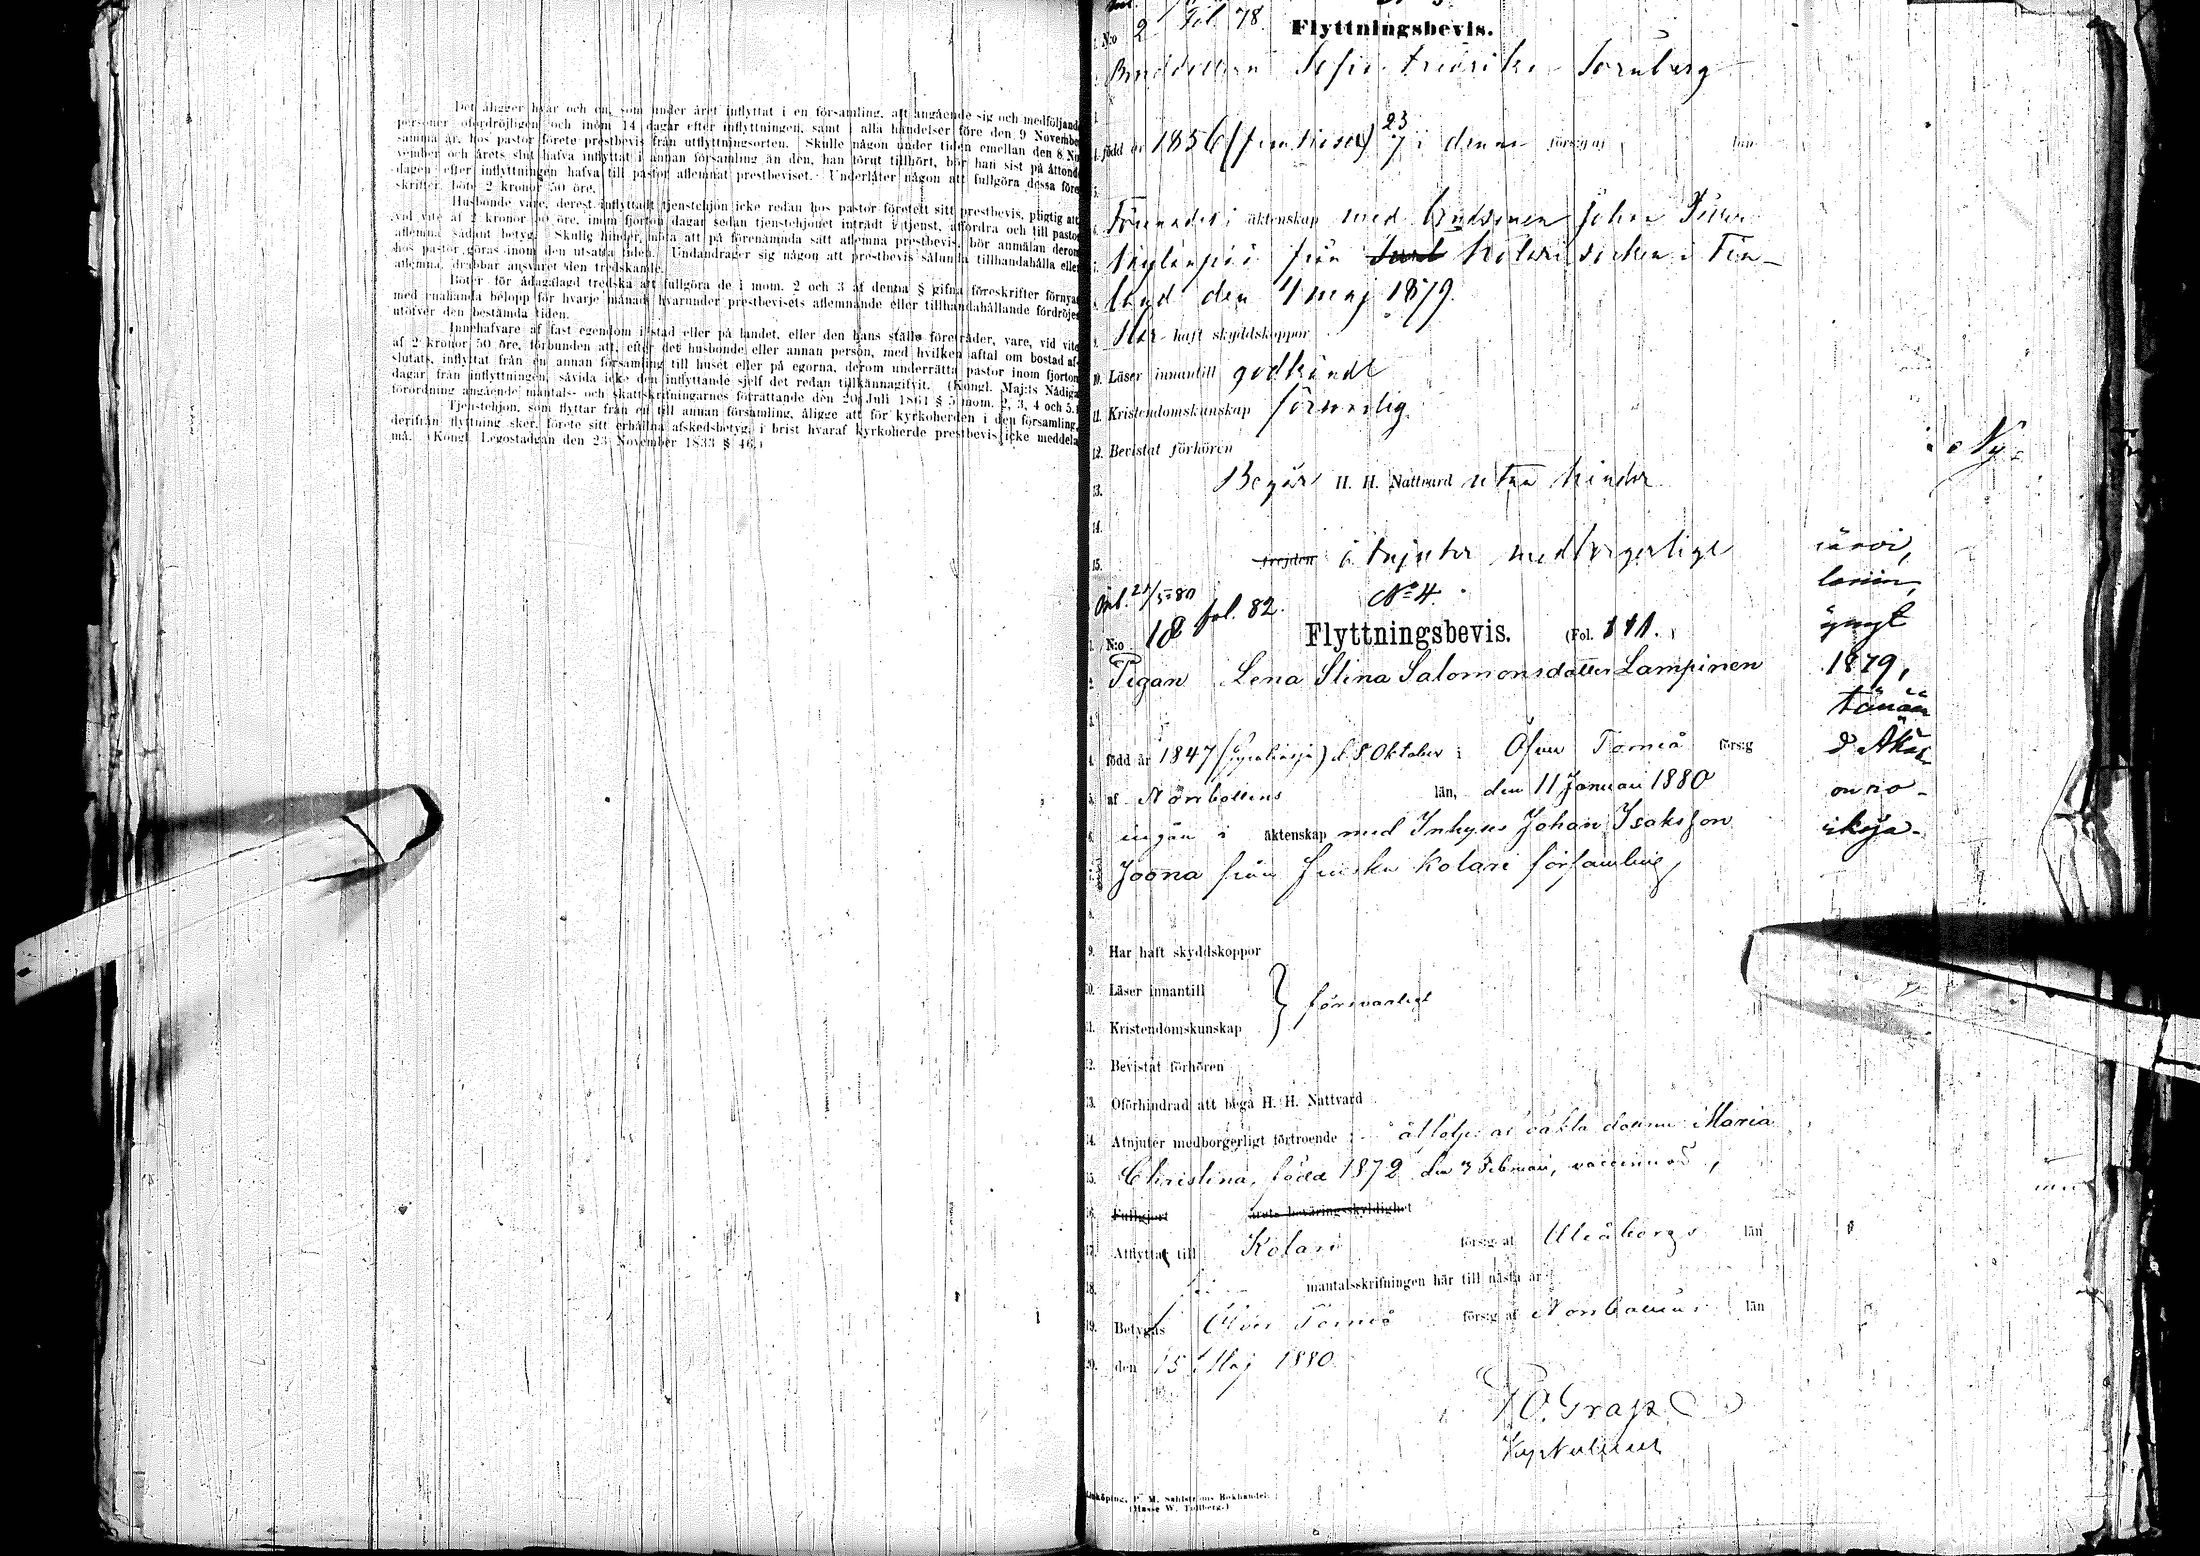 Det åligger hvar och en, som under året inflyttat i en församling, att angående sig och medföljande
personer ofördröjligen och inom 14 dagar efter inflyttningen, samt i alla händelser före den 9 November
samma år, hos pastor förete prestbevis från utflyttningsorten. Skulle någon under tiden emellan den 8 No-
vember och årets slut hafva inflyttat i annan församling än den, han förut tillhört, bör han sist på åttonde
dagen efter inflyttningen hafva till pastor aflemnat prestbeviset. Underlåter någon att fullgöra dessa före-
skrifter, böte 2 kronor 50 öre.
Husbonde vare, derest inflyttadt tjenstehjon icke redan hos pastor företett sitt prestbevis, pligtig att
vid vite af 2 kronor 50 öre, inom fjorton dagar sedan tjenstehjonet inträdt i tjenst, affordra och till pastor
aflemna sådant betyg. Skulle hinder möta att på förenämnda sätt aflemna prestbevis, bör anmälan derom
hos pastor göras inom den utsatta tiden. Undandrager sig någon att prestbevis sålunda tillhandahålla eller
aflemna, drabbar ansvaret den tredskande.
Böter för ådagalagd tredska att fullgöra de i mom. 2 och 3 af denna § gifna föreskrifter förnyas
med enahanda belopp för hvarje månad, hvarunder prestbevisets aflemnande eller tillhandahållande fördröjes
utöfver den bestämda tiden.
Innehafvare af fast egendom i stad eller på landet, eller den hans ställe företräder, vare, vid vite
af 2 kronor 50 öre, förbunden att, efter det husbonde eller annan person, med hvilken aftal om bostad af-
slutats, inflyttat från en annan församling till huset eller på egorna, derom underrätta pastor inom fjorton
dagar från inflyttningen, såvida icke den inflyttande sjelf det redan tillkännagifvit. (Kongl. Maj:ts Nådiga
förordning angående mantals- och skattskrifningarnes förrättande den 20 Juli 1861 § 5 mom. 2, 3, 4 och 5.)
Tjenstehjon, som flyttar från en till annan församling, åligge att för kyrkoherden i den församling,
derifrån flyttning sker, förete sitt erhållna afskedsbetyg, i brist hvaraf kyrkoherde prestbevis icke meddela
må. (Kongl. Legostadgan den 23 November 1833 § 46.)
N:o 2 Fol. 78 Flyttningsbevis.
Sofia Fredrika
född år 1856 23/7 i denna förs:g
äktenskap med Johan
från Kolari socken i Fin-
land den 4 maj 1879.
Har haft skyddskoppor
10. Läser innantill godkändt
11. Kristendomskunskap försvarlig
12. Bevistat förhören
13. Begår H. H. Nattvard utan hinder
14.
15. frejden åtnjuter medborgerlige
Ny
järvi,
1879,
tänään
N:o 4.
fol. 82.
1. N:o 18 Flyttningsbevis. (Fol. 141.)
2. Pigan Lena Stina Salomonsdotter Lampinen
4. född år 1847 d. 8 Oktober i Öfver Torneå förs:g
5. af Norrbottens län, den 11 Januari 1880
6. ingån i äktenskap med Inhyses Johan Isaksson
7. Joona från finska Kolari församling
9. Har haft skyddskoppor
10. Läser innantill
försvarligt
11. Kristendomskunskap
12. Bevistat förhören
13. Oförhindrad att begå H. H. Nattvard
14. Åtnjuter medborgerligt förtroende; åtföljes af oäkta dottern Maria
15. Christina, född 1872 den 3 Februari, vaccinerad,
16. Fullgjort årets beväringsskyldighet
17. Afflyttar till Kolari förs:g af Uleåborgs län
18. mantalsskrifningen här till nästa år
19. Betygas Öfver Torneå förs:g af Norrbottens län
20. den 15 Maj 1880.
P O. Grape
Linköping, P. M. Sahlströms Bokhandel.